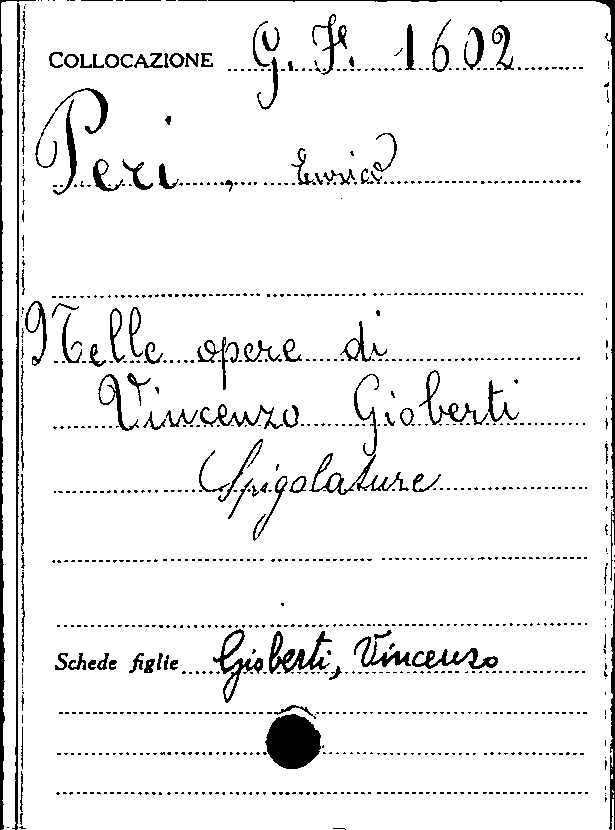 COLLOCAZIONE G. F. 1602
Peri, Enrico
Nelle opere di
Vincenzo Gioberti
Spigolature
Schede figlie Gioberti, Vincenzo